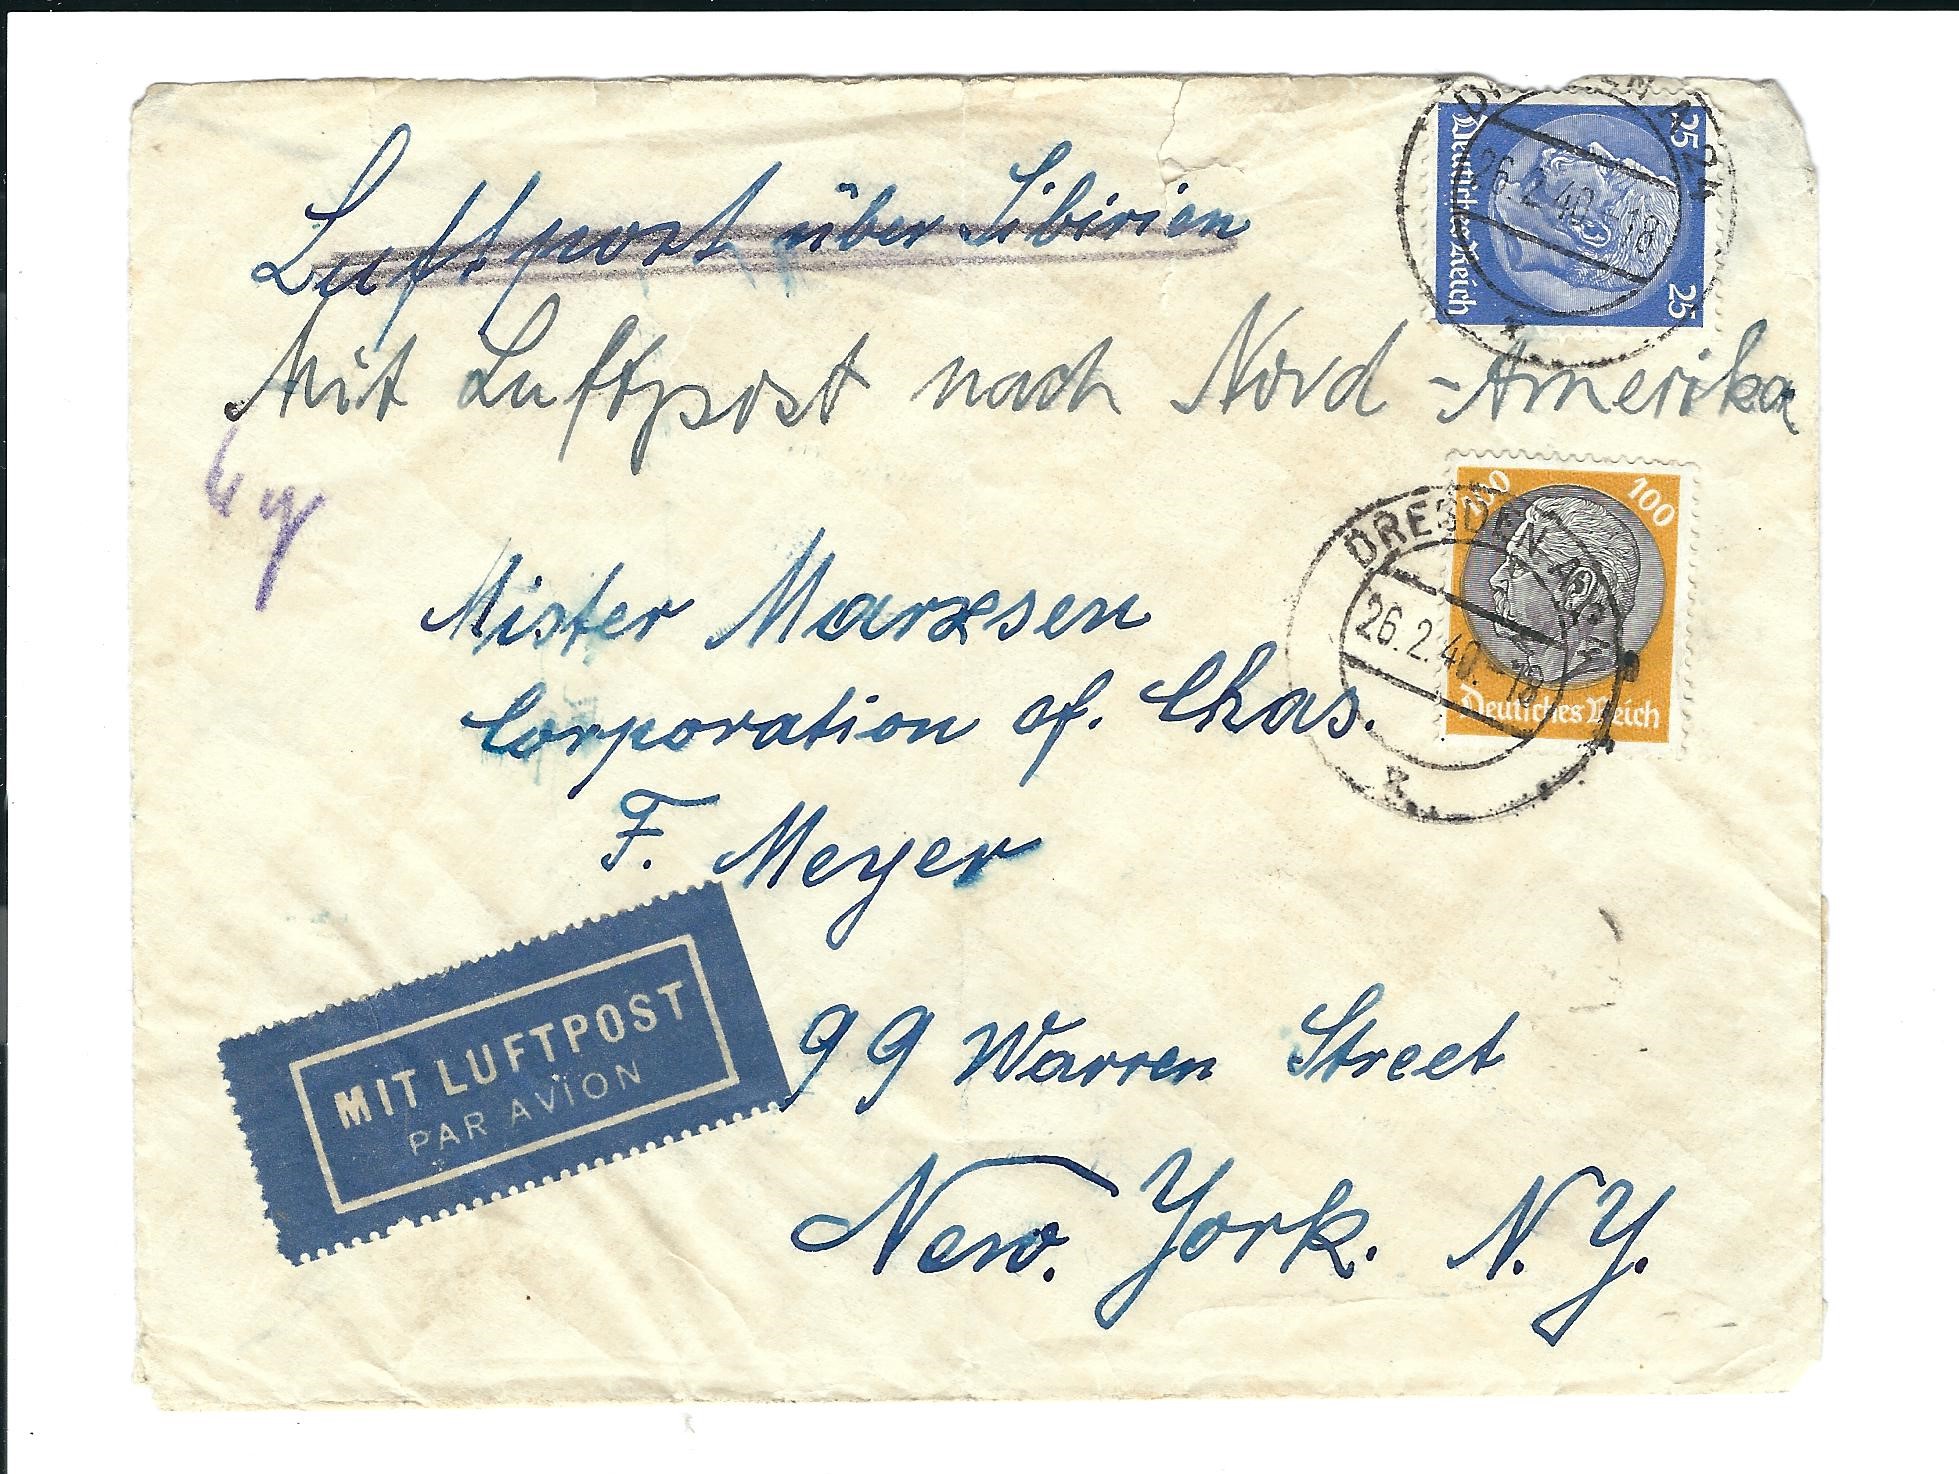 Luftpost über Sibirien
Mit Luftpost nach Nord-Amerika
Mister Marxsen
Corporation of. Chas.
F. Meyer
99 Warren Street
New. York. N.Y.
MIT LUFTPOST
PAR AVION
Deutsches Reich
25
25
DRESDEN A 24
26.2.40.-18
100
100
Deutsches Reich
DRESDEN A 24
26.2.40.-18